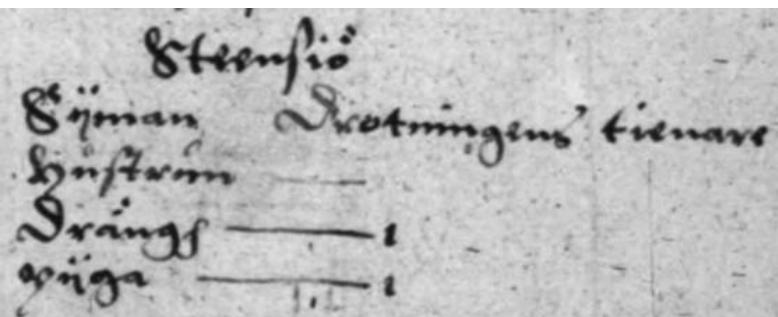 Steensiö
Sÿman Drotningens tienare
Hustrun ———
Drängh ——— 1
Pÿga ——— 1